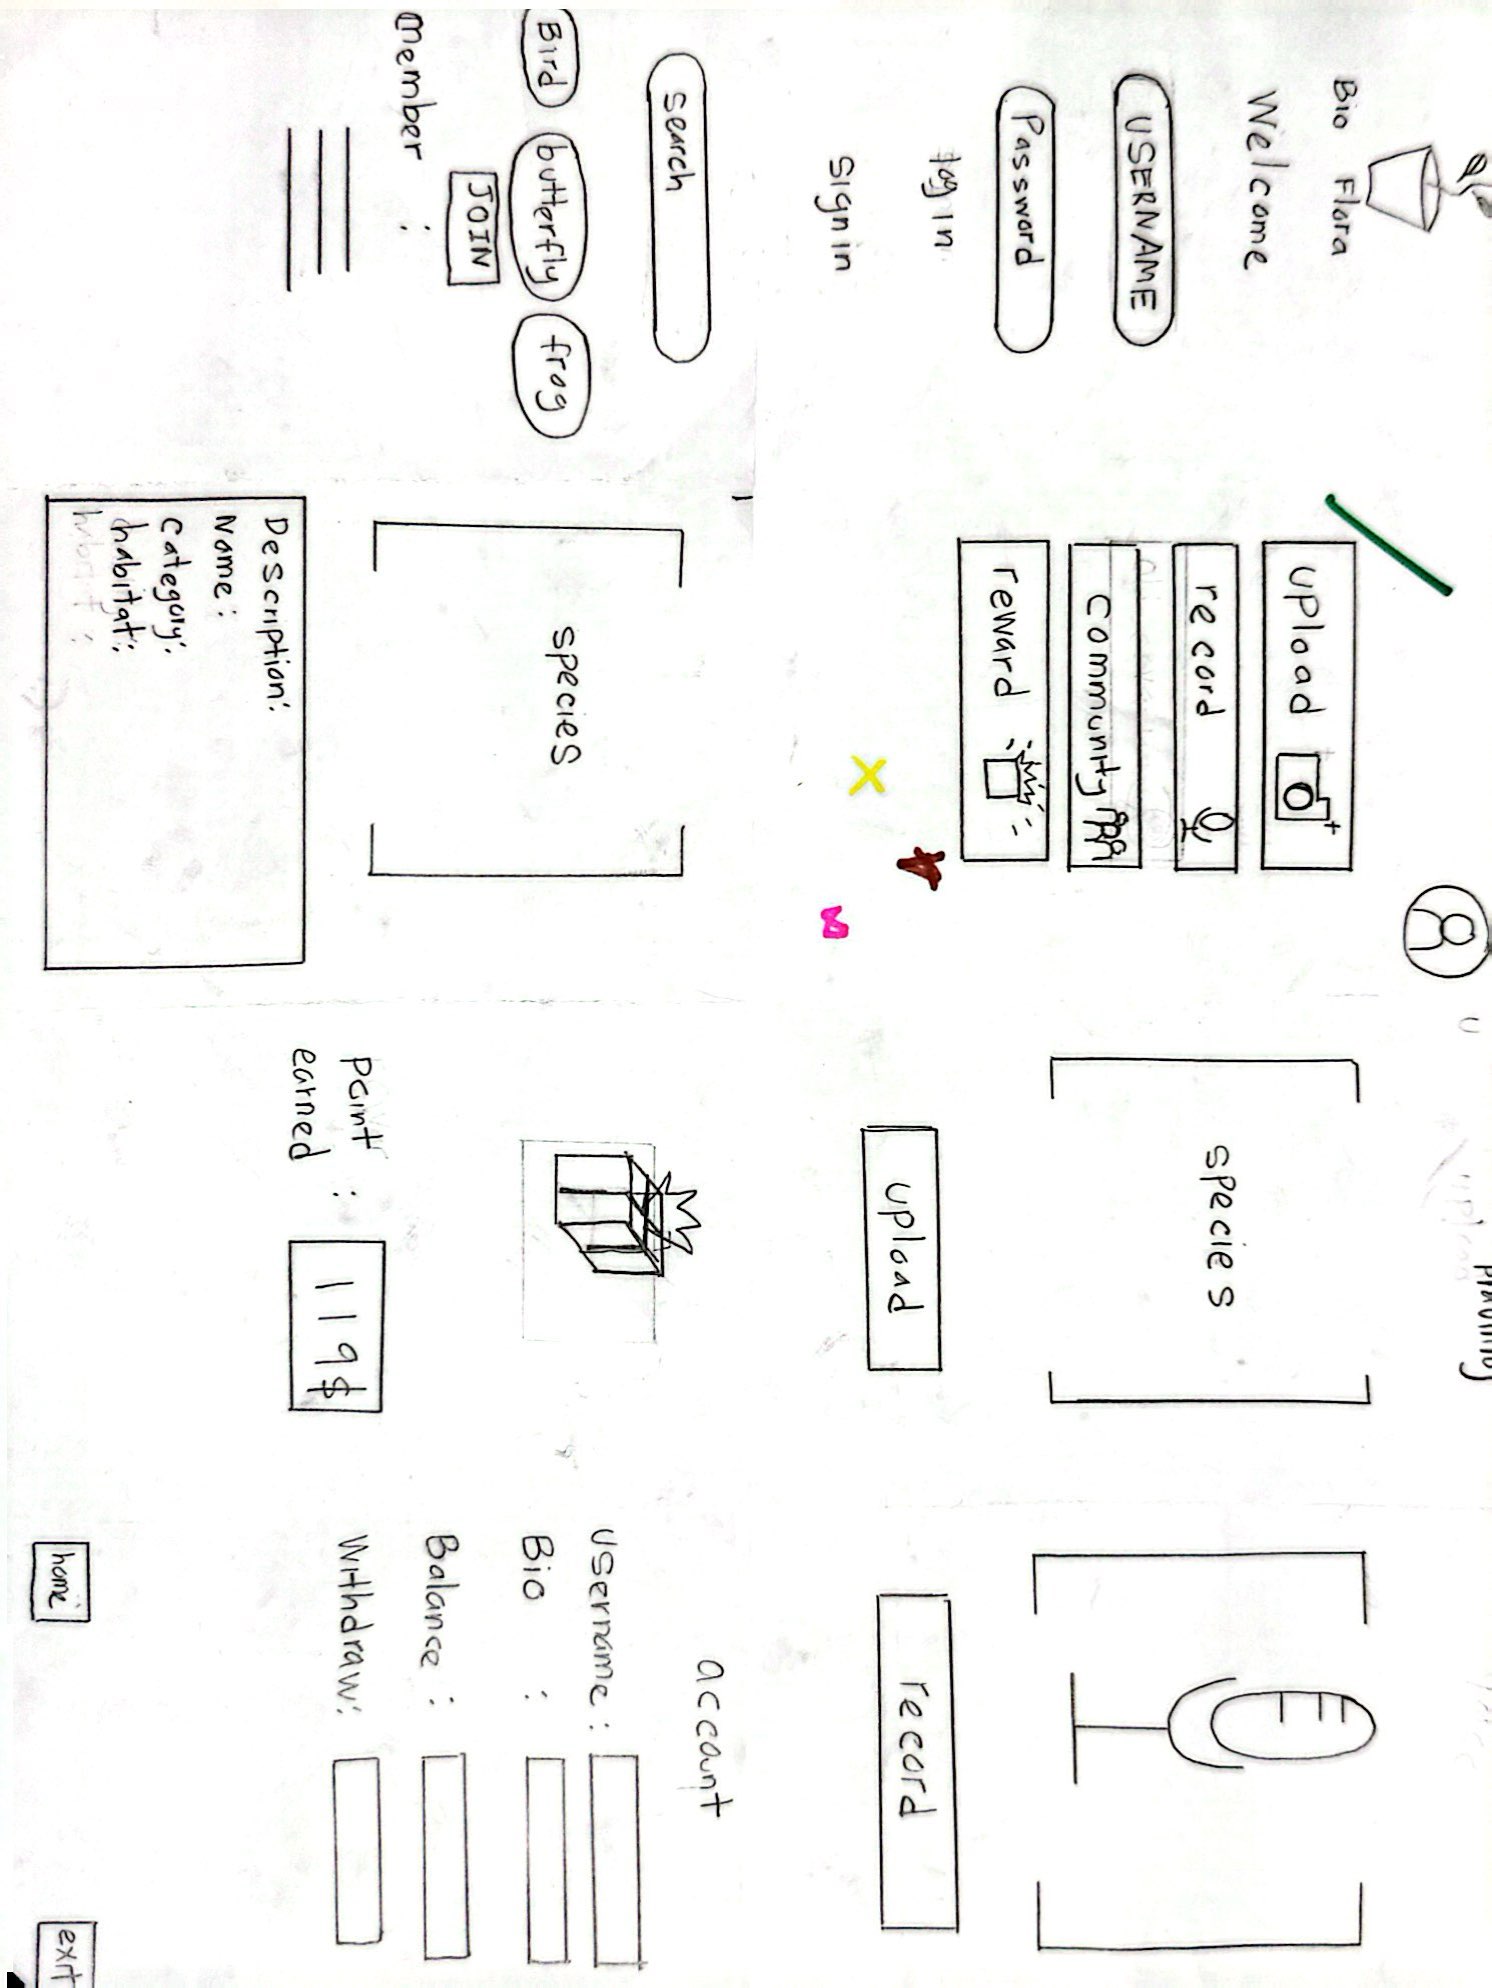 Bio Flora
Welcome
USERNAME
Password
log in
Sign in
upload
record
community
reward
species
upload
record
search
Bird
butterfly
frog
JOIN
member :
species
Description:
Name :
category:
habitat:
point
earned :
119$
account
Username :
Bio :
Balance :
Withdraw:
home
exit